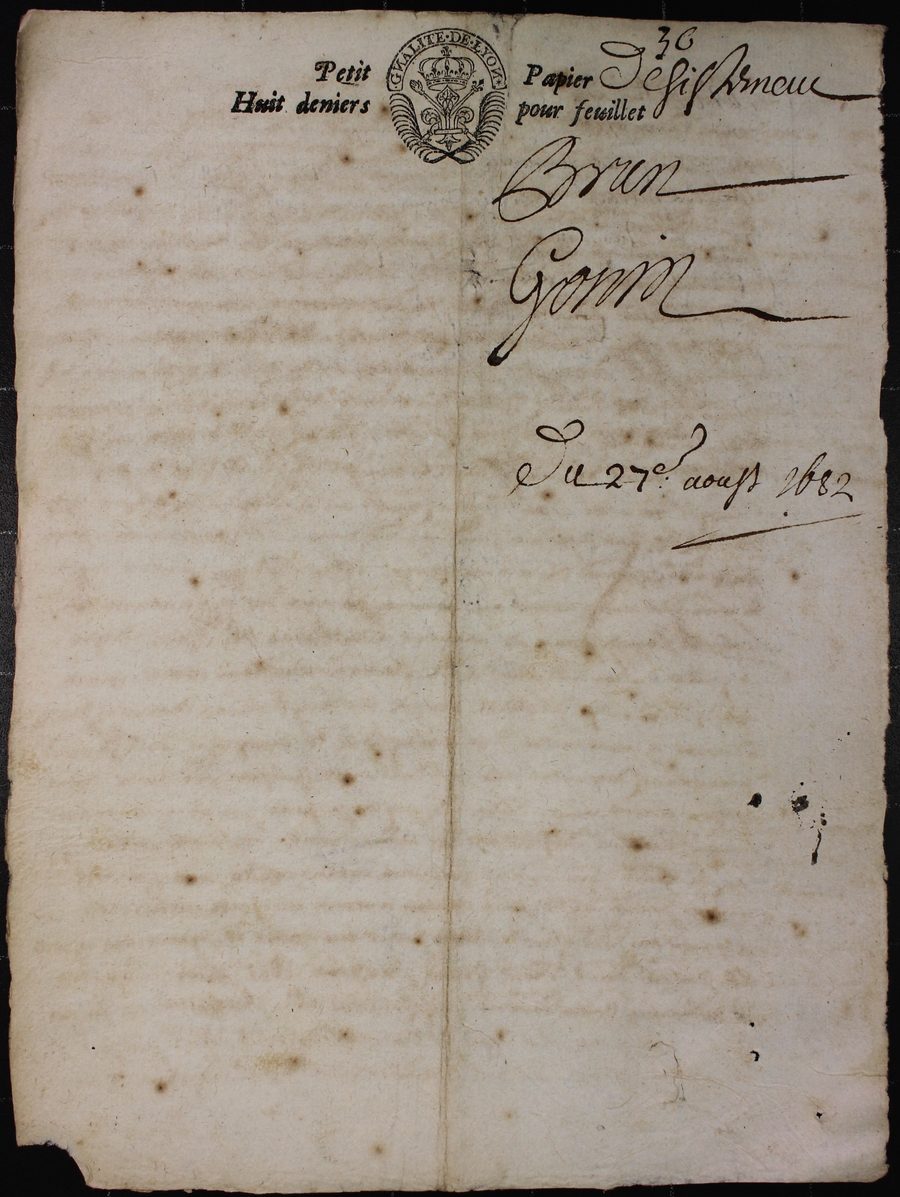 GNALITE·DE·LYON·
36
Petit Papier Desistemeu
Huit deniers pour feuillet
Brun
Gonin
Du 27e. aoust 1682